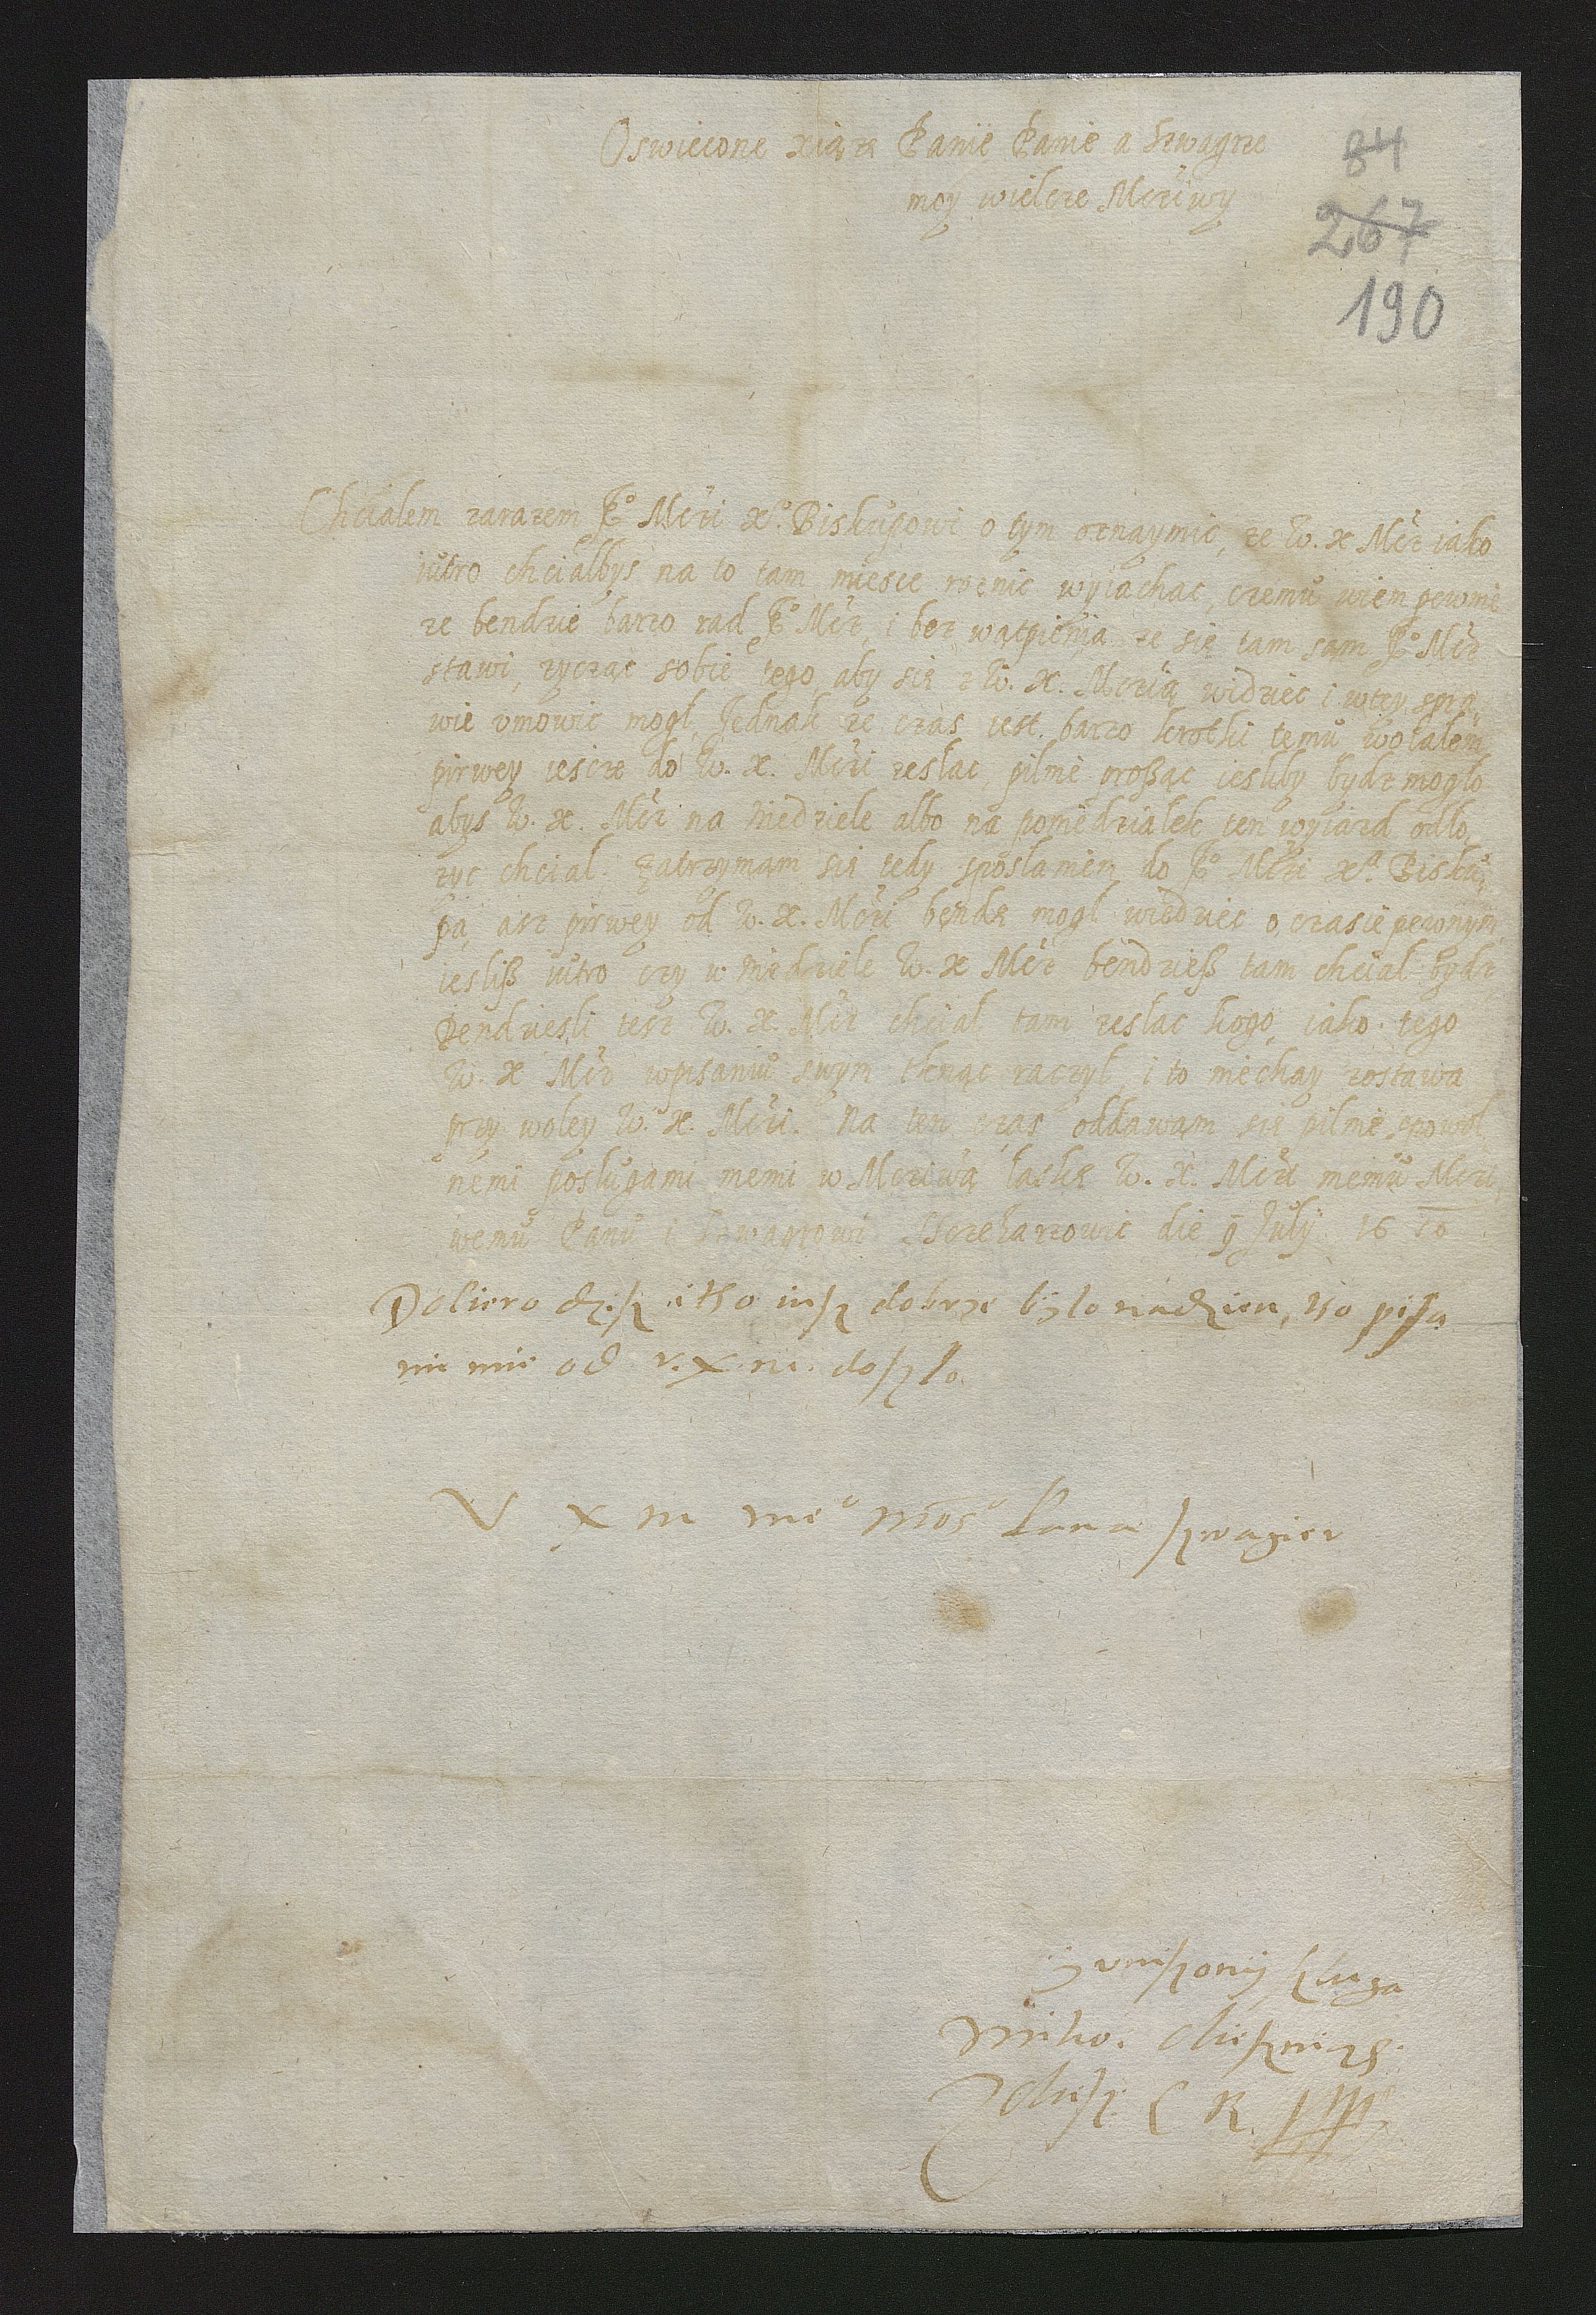 Oswiecone xiąże Panie Panie a Szwagrze
moy wielce Mcziwy
84
267
190
Chcialem zarazem Jº Mczi Xº Biskupowi o tym oznaymic, ze W. X Mcz iako
iutro chcialbys na to tam miesce wyiachac, czemu wiem pewnie
ze bendzie barzo rad Jº Mcz, i bez wątpienia ze się tam sam Jº Mcz
stawi, zycząc sobie tego, aby się z W. X. Mczią widziec i wtey spra,
wie vmowic mogl. Jednak ze czas iest barzo krotki temu wolalem
pirwey iescze do W. X. Mczi zeslac, pilnie proßąc iesliby bydz moglo
abys W. X. Mcz na Niedziele albo na poniedzialek ten wyiazd odlo,
zyc chcial. Zatrzymam się tedy sposlaniem do Jº Mczi Xª Bisku,
pa, asz pirwey od W. X. Mczi bendę mogl wiedziec o czasie pewnym
iesliß iutro czy w Niedziele W. X Mcz bendzieß tam chcial bydz
Bendziesli tesz W. X. Mcz chcial tam zeslac kogo, iako tego
W. X Mcz wpisaniu swym tknąc raczyl, i to niechay zostawa
przy woley W. X. Mczi. Na ten czas oddawam się pilnie spowol,
nemi poslugami memi w Mcziwą laskę W. X. Mczi memu Mczi,
wemu Panu i Szwagrowi die 9 July 16 10
dobrze bylo nadzien, pisa
nie mie od v. X m. doszlo
V X m meº Mosº Pana szwagier
y vnizony sluga